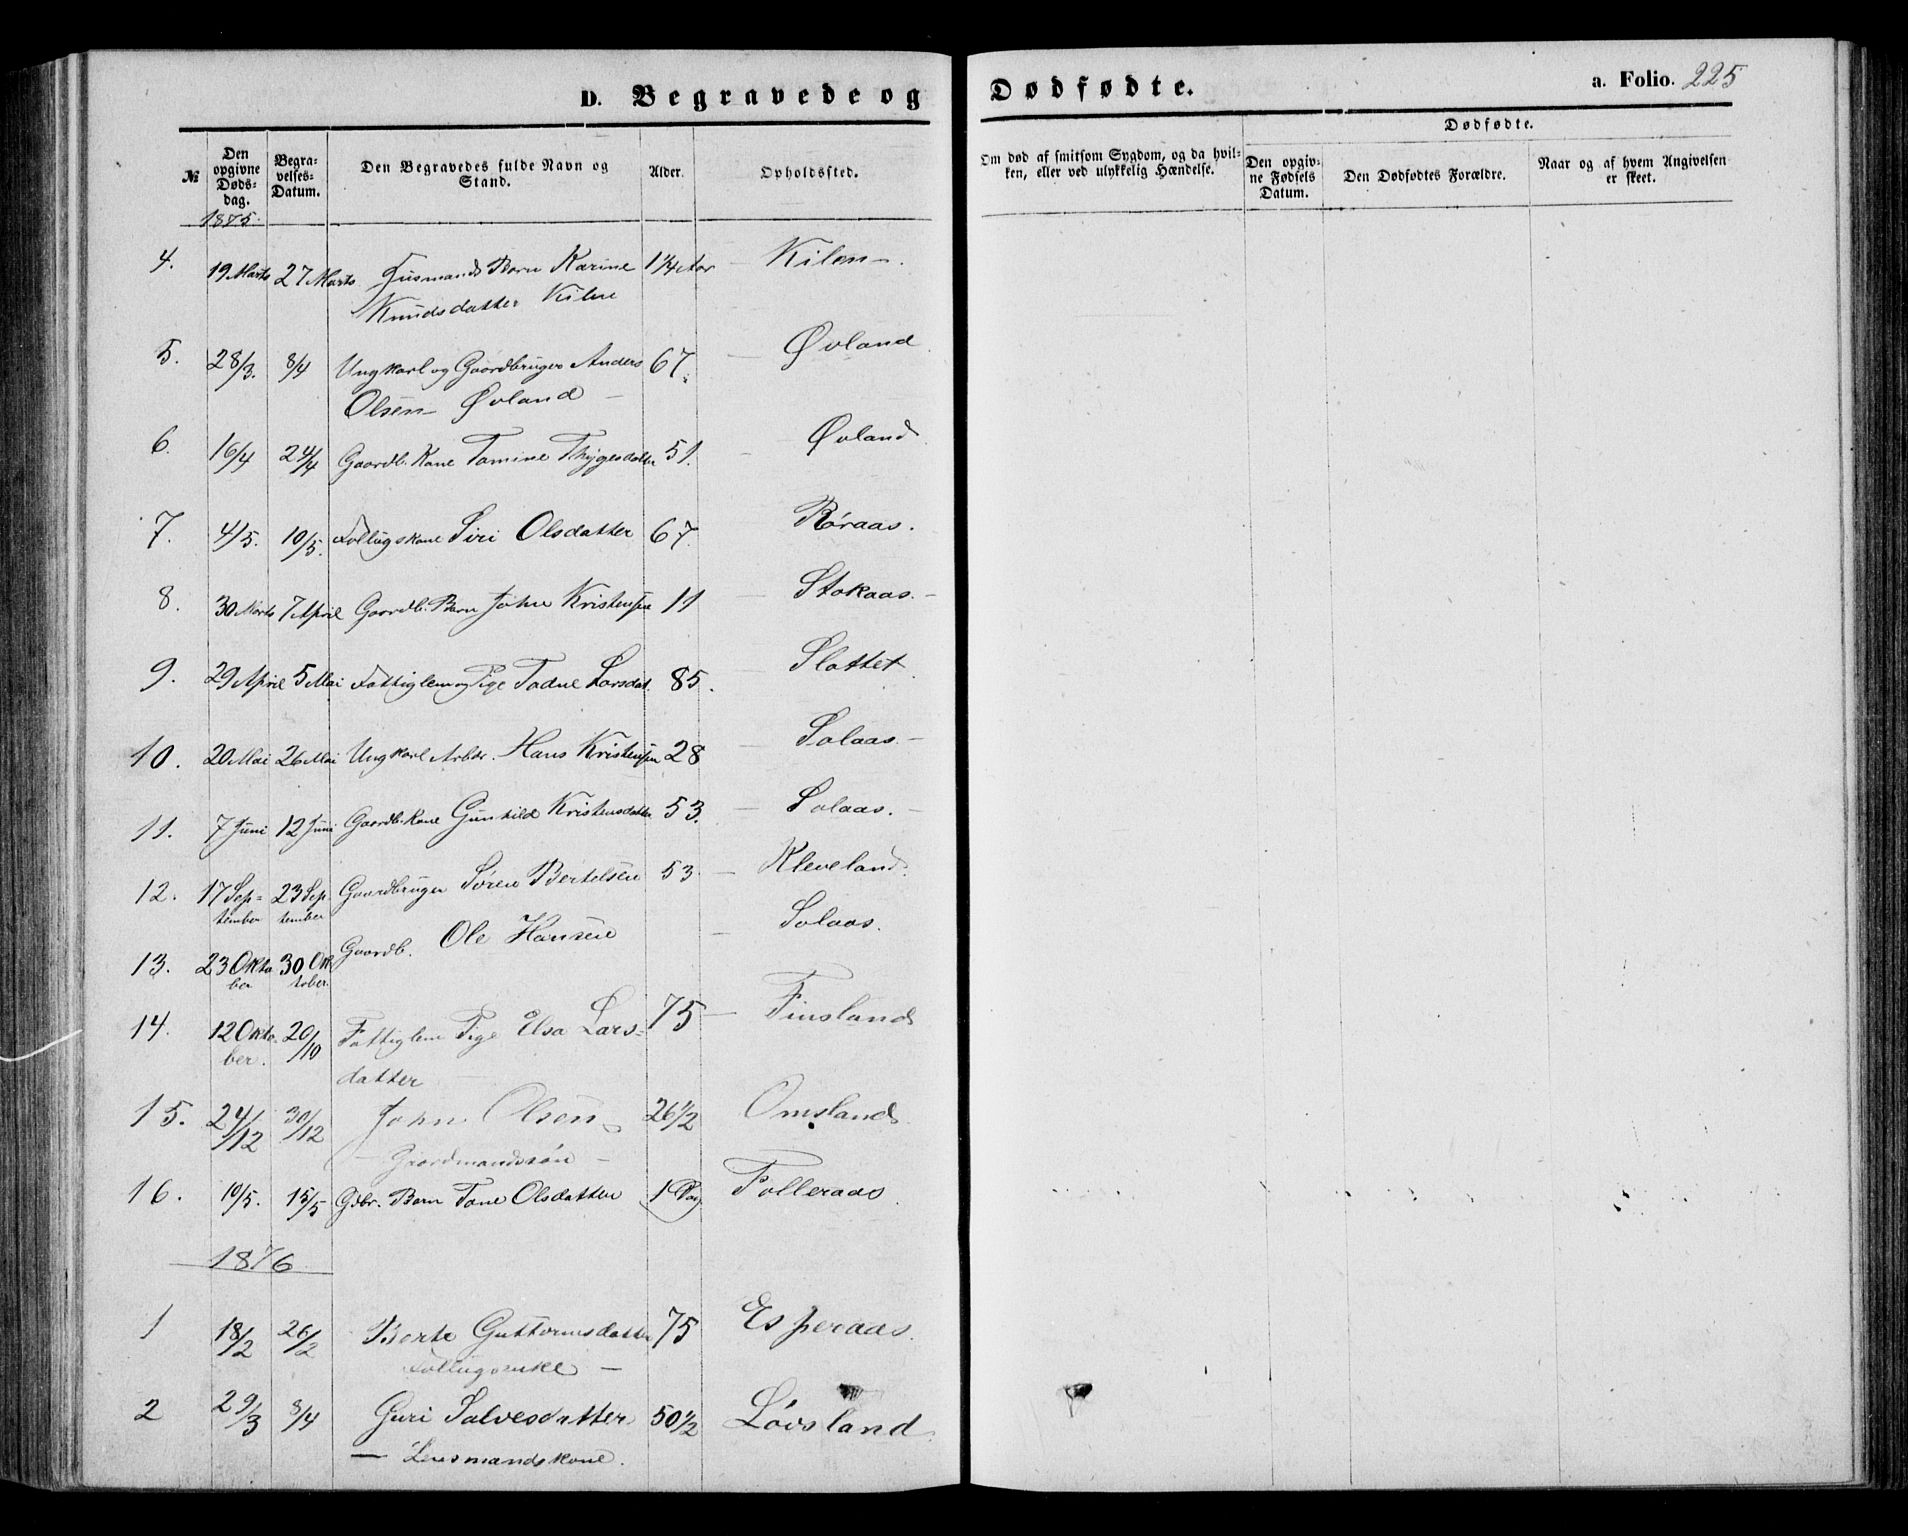 D. Begravede og Dødfødte.
a. Folio. 225
№
Den opgivne Dødsdag.
Begravelses-Datum.
Den Begravedes fulde Navn og Stand.
Alder.
Opholdssted.
Om død af smitsom Sygdom, og da hvilken, eller ved ulykkelig Hændelse.
Dødfødte.
Den opgivne Fødsels Datum.
Den Dødfødtes Forældre.
Naar og af hvem Angivelsen er skeet.
1875.
4. 19 Marts 27 Marts Husmands Barn Karine 1¼ Aar – Kilen –.
Knudsdatter Kilen
5. 28/3. 8/4 Ungkarl og Gaardbruger Anders 67. – Øvland.
Olsen – Øvland –
6. 16/4 24/4 Gaardb. Kone Tomine Thygesdatter 51. – Øvland
7. 4/5. 10/5. Follugskone Siri Olsdatter 67. Røraas.
8. 30 Marts 7 April Gaardb. Barn John Kristensen 11 – Stokaas. –
9. 29 April 5 Mai Fattiglem og Pige Todne Larsdat. 85. – Slottet.
10. 20 Mai 26 Mai Ungkarl Arbdr. Hans Kristensen 28 – Solaas –
11. 7 Juni 12 Juni Gaardb. Kone Gunhild Kristensdatter 53. – Solaas. –
12. 17 September 23 September Gaardbruger Søren Bertelsen 53 – Kleveland.
13. 23 Oktober 30 Oktober. Gaardb. Ole Hansen – Solaas.
14. 12 Oktober. 20/10 Fattiglem Pige Elsa Lars- 75 – Finsland
datter
15. 24/12 30/12 John Olsen 26½ Omsland
– Gaardmandssøn –
16. 10/5. 15/5 Gdbr. Barn Tone Olsdatter 1 Dag Folleraas.
1876
1 18/2 26/2 Berte Guttormsdatter 75 Esperaas.
Follugsenke –
2 29/3 8/4 Guri Salvesdatter 50½ Løvsland.
– Lensmandskone.